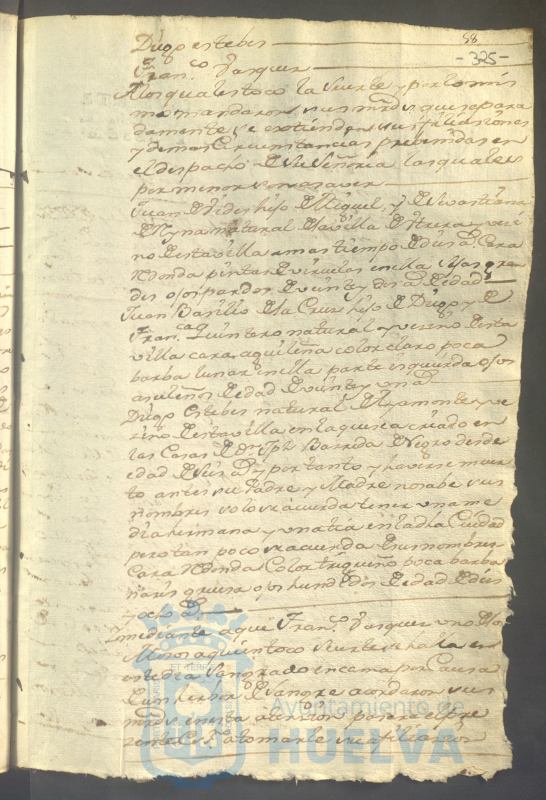 58
-325-
Diego estebes
Fran.co Vasques
A los quales toco la suerte y por lo mis
mo mandaron sus mrds que separa
damente se extiendan sus filiasiones
y demas circunstancias prebenidas en
el despacho de su Señoria las quales
por menor son a saver
Juan hijo de Miguel y de Sevastiana
natural de la villa de Utrera y veci
no de esta villa a mas tiempo de dies a.s Cara
Redonda pintas de viruelas en ella
ojos pardos de veinte y dos a.s de edad
Juan Basilio de la Cruz hijo de Diego y de
Fran.ca Quintero natural y vezino de esta
villa cara aguileña color claro poca
barba lunar en la parte isquierda ojos
asuleños de edad de veinte y un a.s
Diego Estebes natural de Ayamonte y ve
zino de esta villa en la que se a criado en
las Casas de D.n Jph Barrida de Negro desde
edad de seis a.s y por tanto y haverse muer
to antes su Padre y Madre no sabe sus
nombres solo se acuerda tener una me
dia hermana y una tia en la dha Ciudad
pero tan poco se acuerda de sus nombres
Cara Redonda Color trigueño poca barba
naris gruesa ojos hundidos de edad de dies
y ocho a.s
mediante a que Fran.co Vasques uno de los
Mosos a quien toco suerte se halla en
este dia sangrado en cama por causa
de sangre acordaron sus
mrds en esta atension pasara el pre
sente es.no a tomarle su afiliasion
Ayuntamiento de
HUELVA